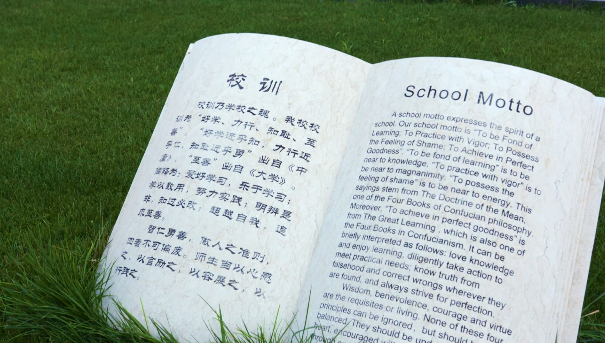 校 训
校训乃学校之魂。我校校
训为"好学、力行、知耻、至
善"。"好学近乎知，力行近
乎仁，知耻近乎勇"出自《中
庸》，"至善"出自《大学》，
爱好学习，乐于学习；
学以致用，努力实践；明辨是
非，知过必改，超越自我，追
求至善。
智仁勇善，做人之准则，
四者不可偏废。师生当以心感
之，以言励之，以容展之，以
行践之。
School Motto
A school motto expresses the spirit of a
school. Our school motto is "To be Fond of
Learning; To Practice with Vigor; To Possess
the Feeling of Shame; To Achieve in Perfect
Goodness". "To be fond of learning" is to be
near to knowledge. "To practice with vigor" is to
be near to magnanimity. "To possess the
feeling of shame" is to be near to energy. This
sayings stem from The Doctrine of the Mean,
one of the Four Books of Confucian philosophy.
Moreover, "To achieve in perfect goodness" is
from The Great Learning, which is also one of
the Four Books in Confucianism. It can be
briefly interpreted as follows: love knowledge
and enjoy learning, diligently take action to
meet practical needs; know truth from
falsehood and correct wrongs wherever they
are found, and always strive for perfection.
Wisdom, benevolence, courage and virtue
are the requisites or living. None of these four
principles can be ignored, but should be
balanced. They should be
heart, encouraged
through